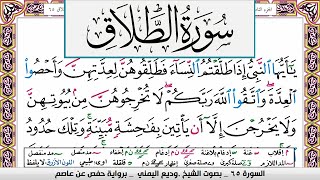 سُورَةُ الطَّلَاقِ
يَٰٓأَيُّهَا ٱلنَّبِيُّ إِذَا طَلَّقْتُمُ ٱلنِّسَآءَ فَطَلِّقُوهُنَّ لِعِدَّتِهِنَّ وَأَحْصُوا۟
ٱلْعِدَّةَ وَٱتَّقُوا۟ ٱللَّهَ رَبَّكُمْ لَا تُخْرِجُوهُنَّ مِنۢ بُيُوتِهِنَّ
وَلَا يَخْرُجْنَ إِلَّآ أَن يَأْتِينَ بِفَٰحِشَةٍ مُّبَيِّنَةٍ وَتِلْكَ حُدُودُ
السورة ٦٥ . بصوت الشيخ .وديع اليمني . برواية حفص عن عاصم